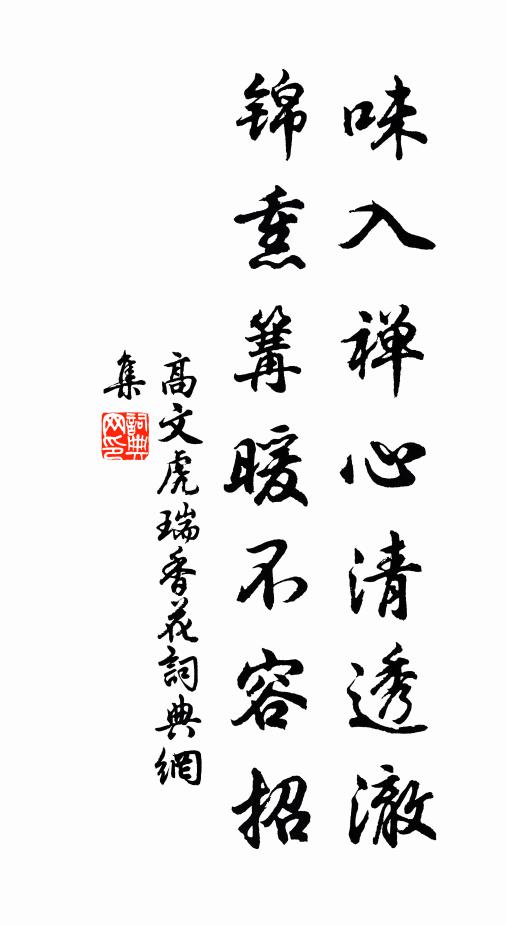 味入禅心清透澈
锦熏篝暖不容招
高文虎瑞香花詞典網
集
詞典网印